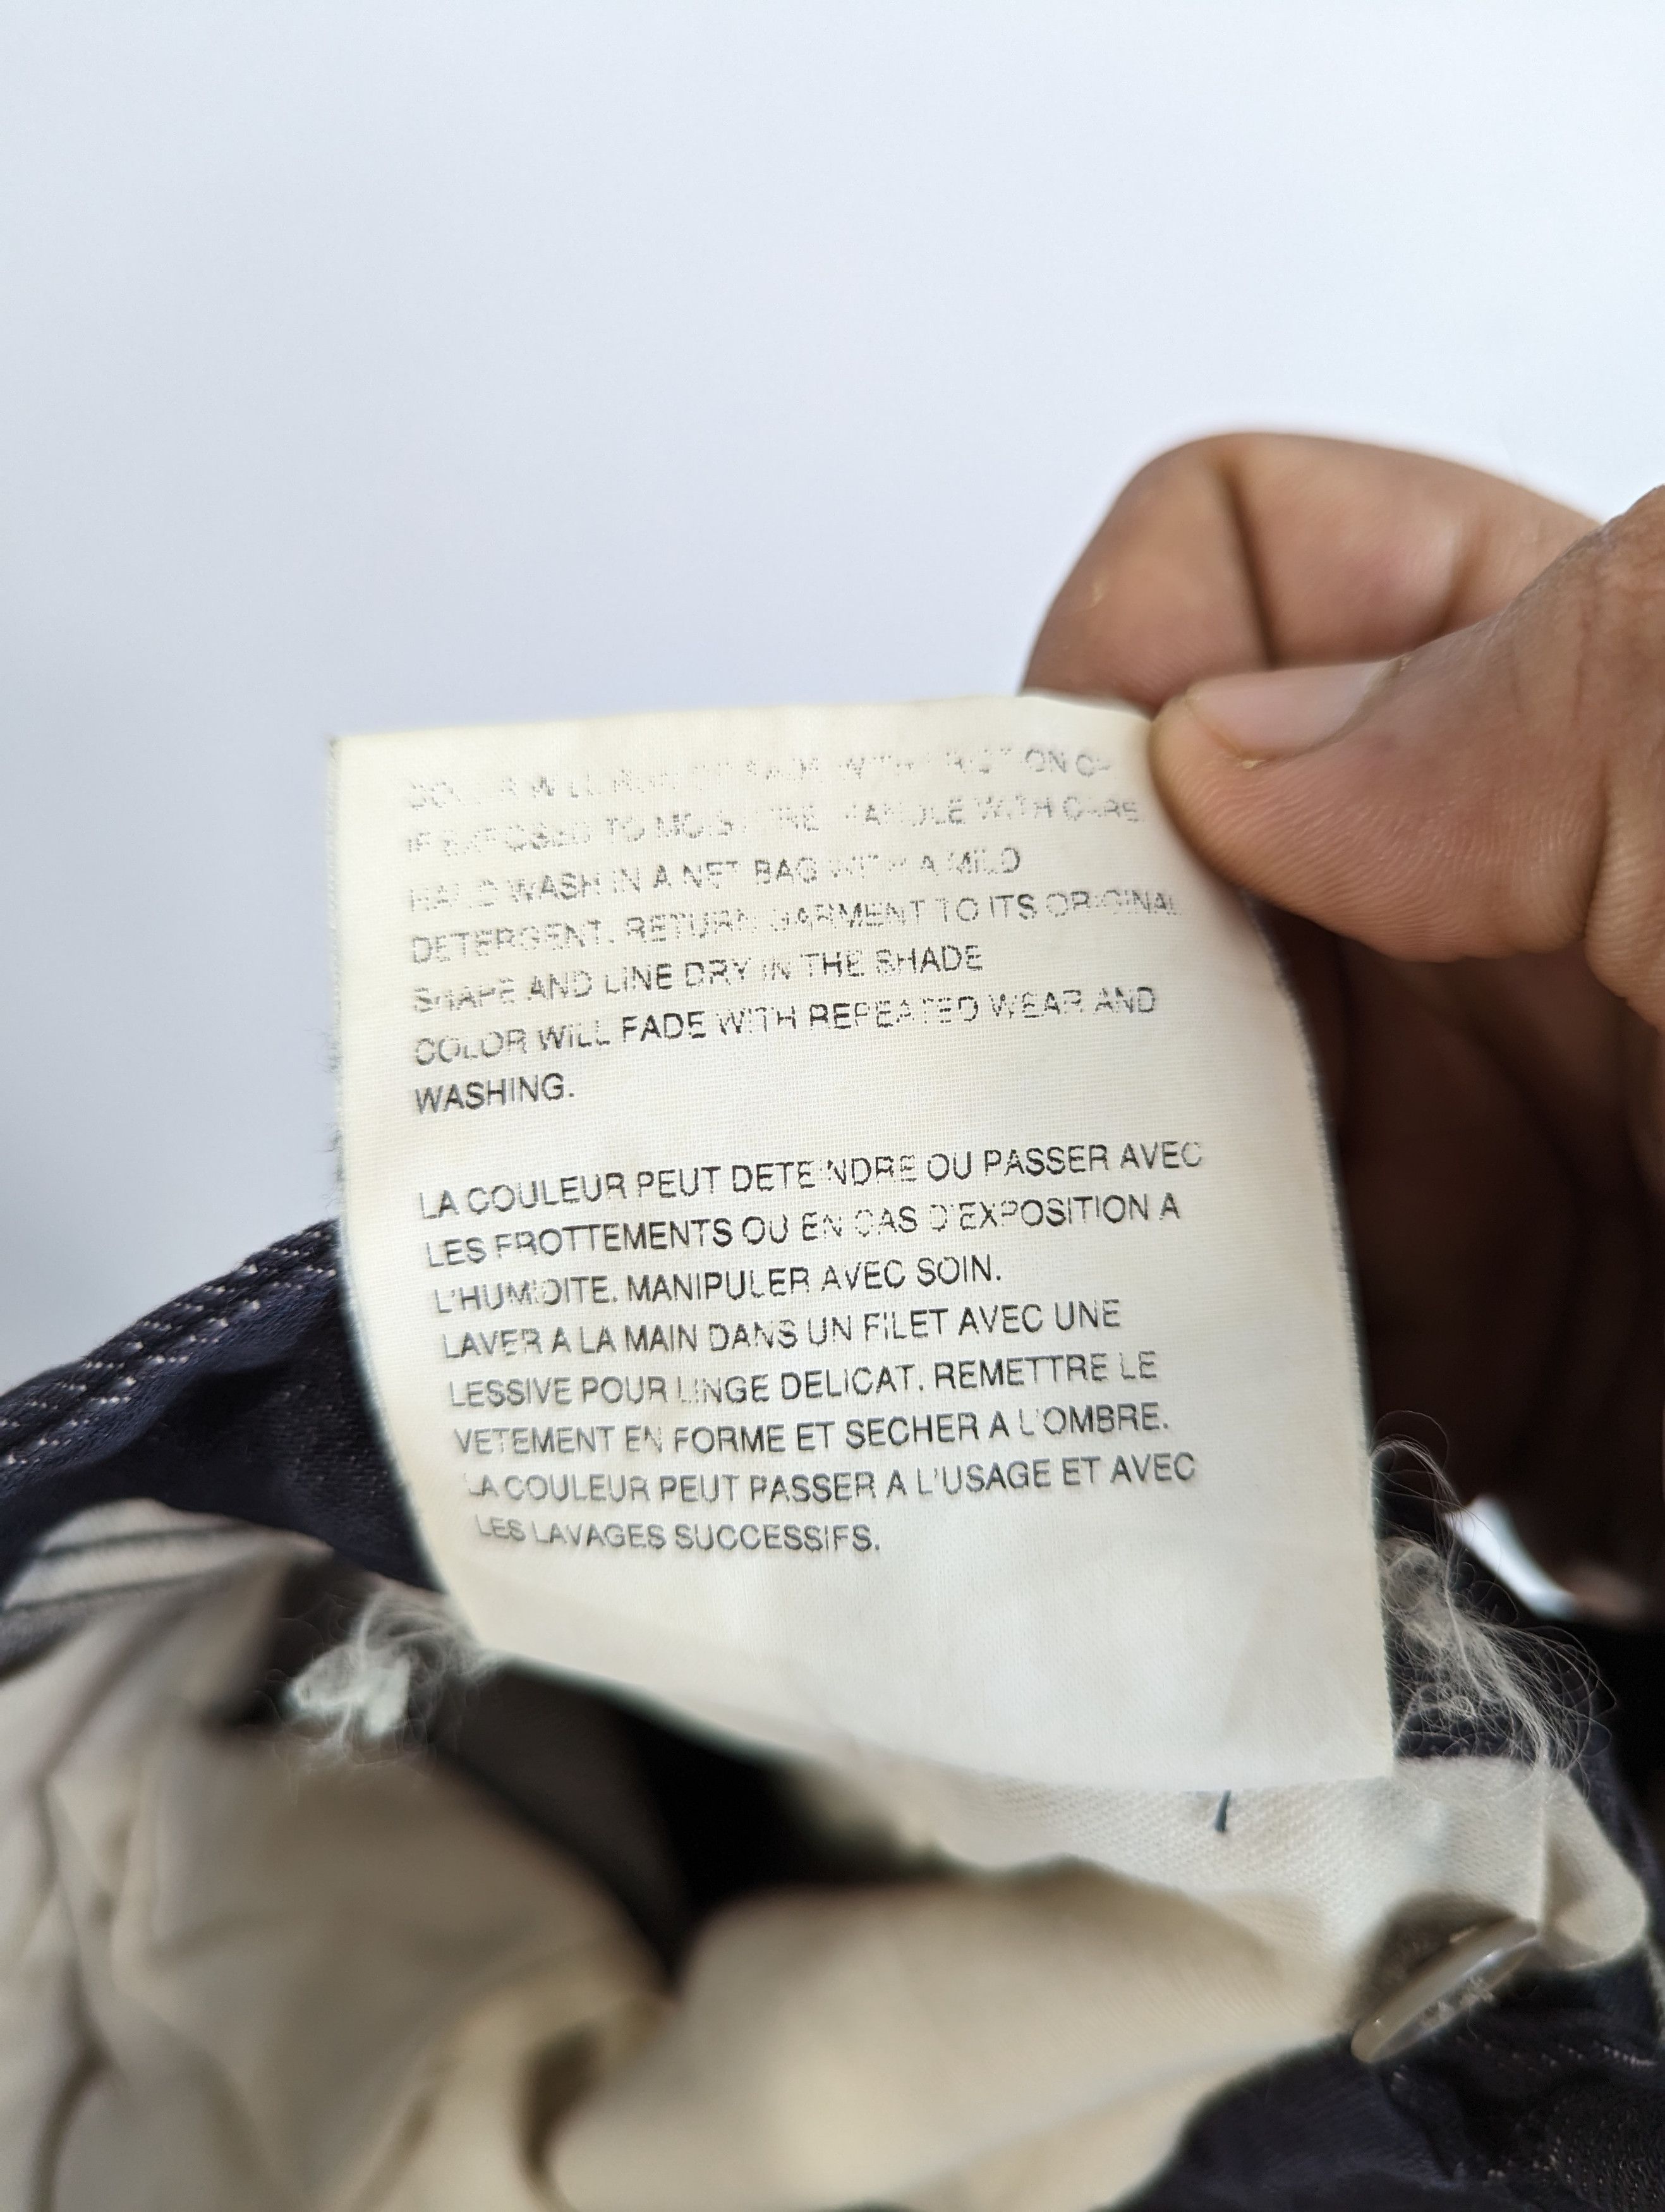 COLOR WILL RUN OR FADE WITH FRICTION OR
IF EXPOSED TO MOISTURE HANDLE WITH CARE
HAND WASH IN A NET BAG WITH A MILD
DETERGENT. RETURN GARMENT TO ITS ORIGINAL
SHAPE AND LINE DRY IN THE SHADE
COLOR WILL FADE WITH REPEATED WEAR AND
WASHING.
LA COULEUR PEUT DETEINDRE OU PASSER AVEC
LES FROTTEMENTS OU EN CAS D'EXPOSITION A
L'HUMIDITE. MANIPULER AVEC SOIN.
LAVER A LA MAIN DANS UN FILET AVEC UNE
LESSIVE POUR LINGE DELICAT. REMETTRE LE
VETEMENT EN FORME ET SECHER A L'OMBRE.
LA COULEUR PEUT PASSER A L'USAGE ET AVEC
LES LAVAGES SUCCESSIFS.